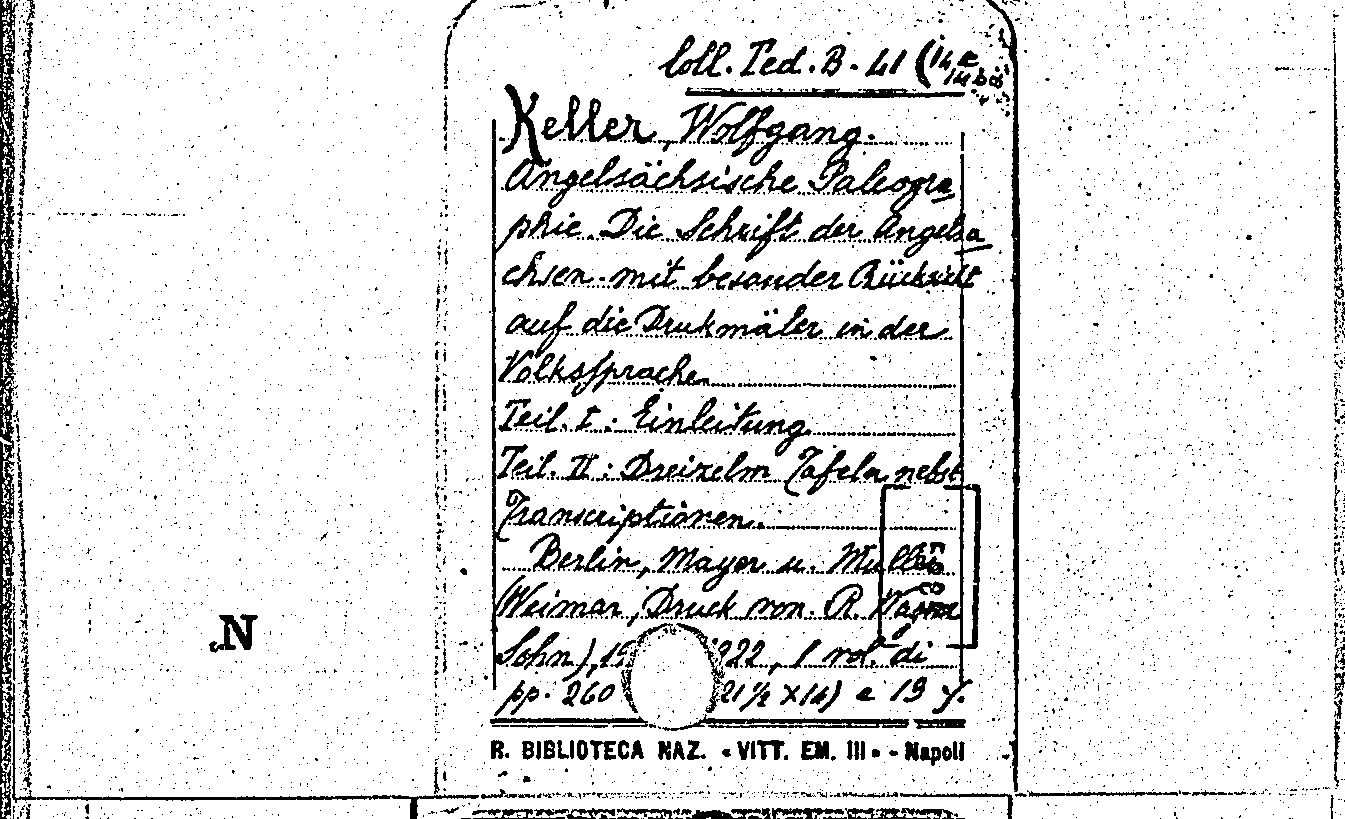 Coll. Ted. B. 41 (14 e
14 bis
Keller, Wolfgang.
Angelsächsische Paleogra
phie. Die Schrift der Angelsa
chsen mit besander Rücksicht
auf die Drukmäler in der
Volkssprache.
Teil. I : Einleitung
Teil. II : Dreizelm Tafeln nebst
Transcriptionen.
Berlin, Mayer u. Muller
(Weimar, Druck von R. Wagner
Sohn), 1922, 1 vol. di
pp. 260 21 ½ x 14) e 19
R. BIBLIOTECA NAZ. « VITT. EM. III » - Napoli
N